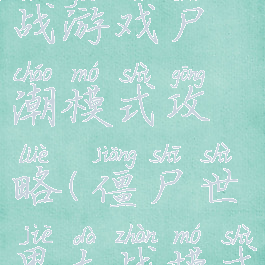 战游戏尸
cháo mó shì gōng
潮模式攻
lüè jiāng shī shì
略(僵尸世
jiè dà zhàn mó shì
界大战模式